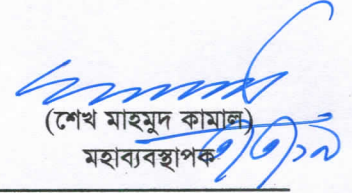 (শেখ মাহমুদ কামাল)
মহাব্যবস্থাপক